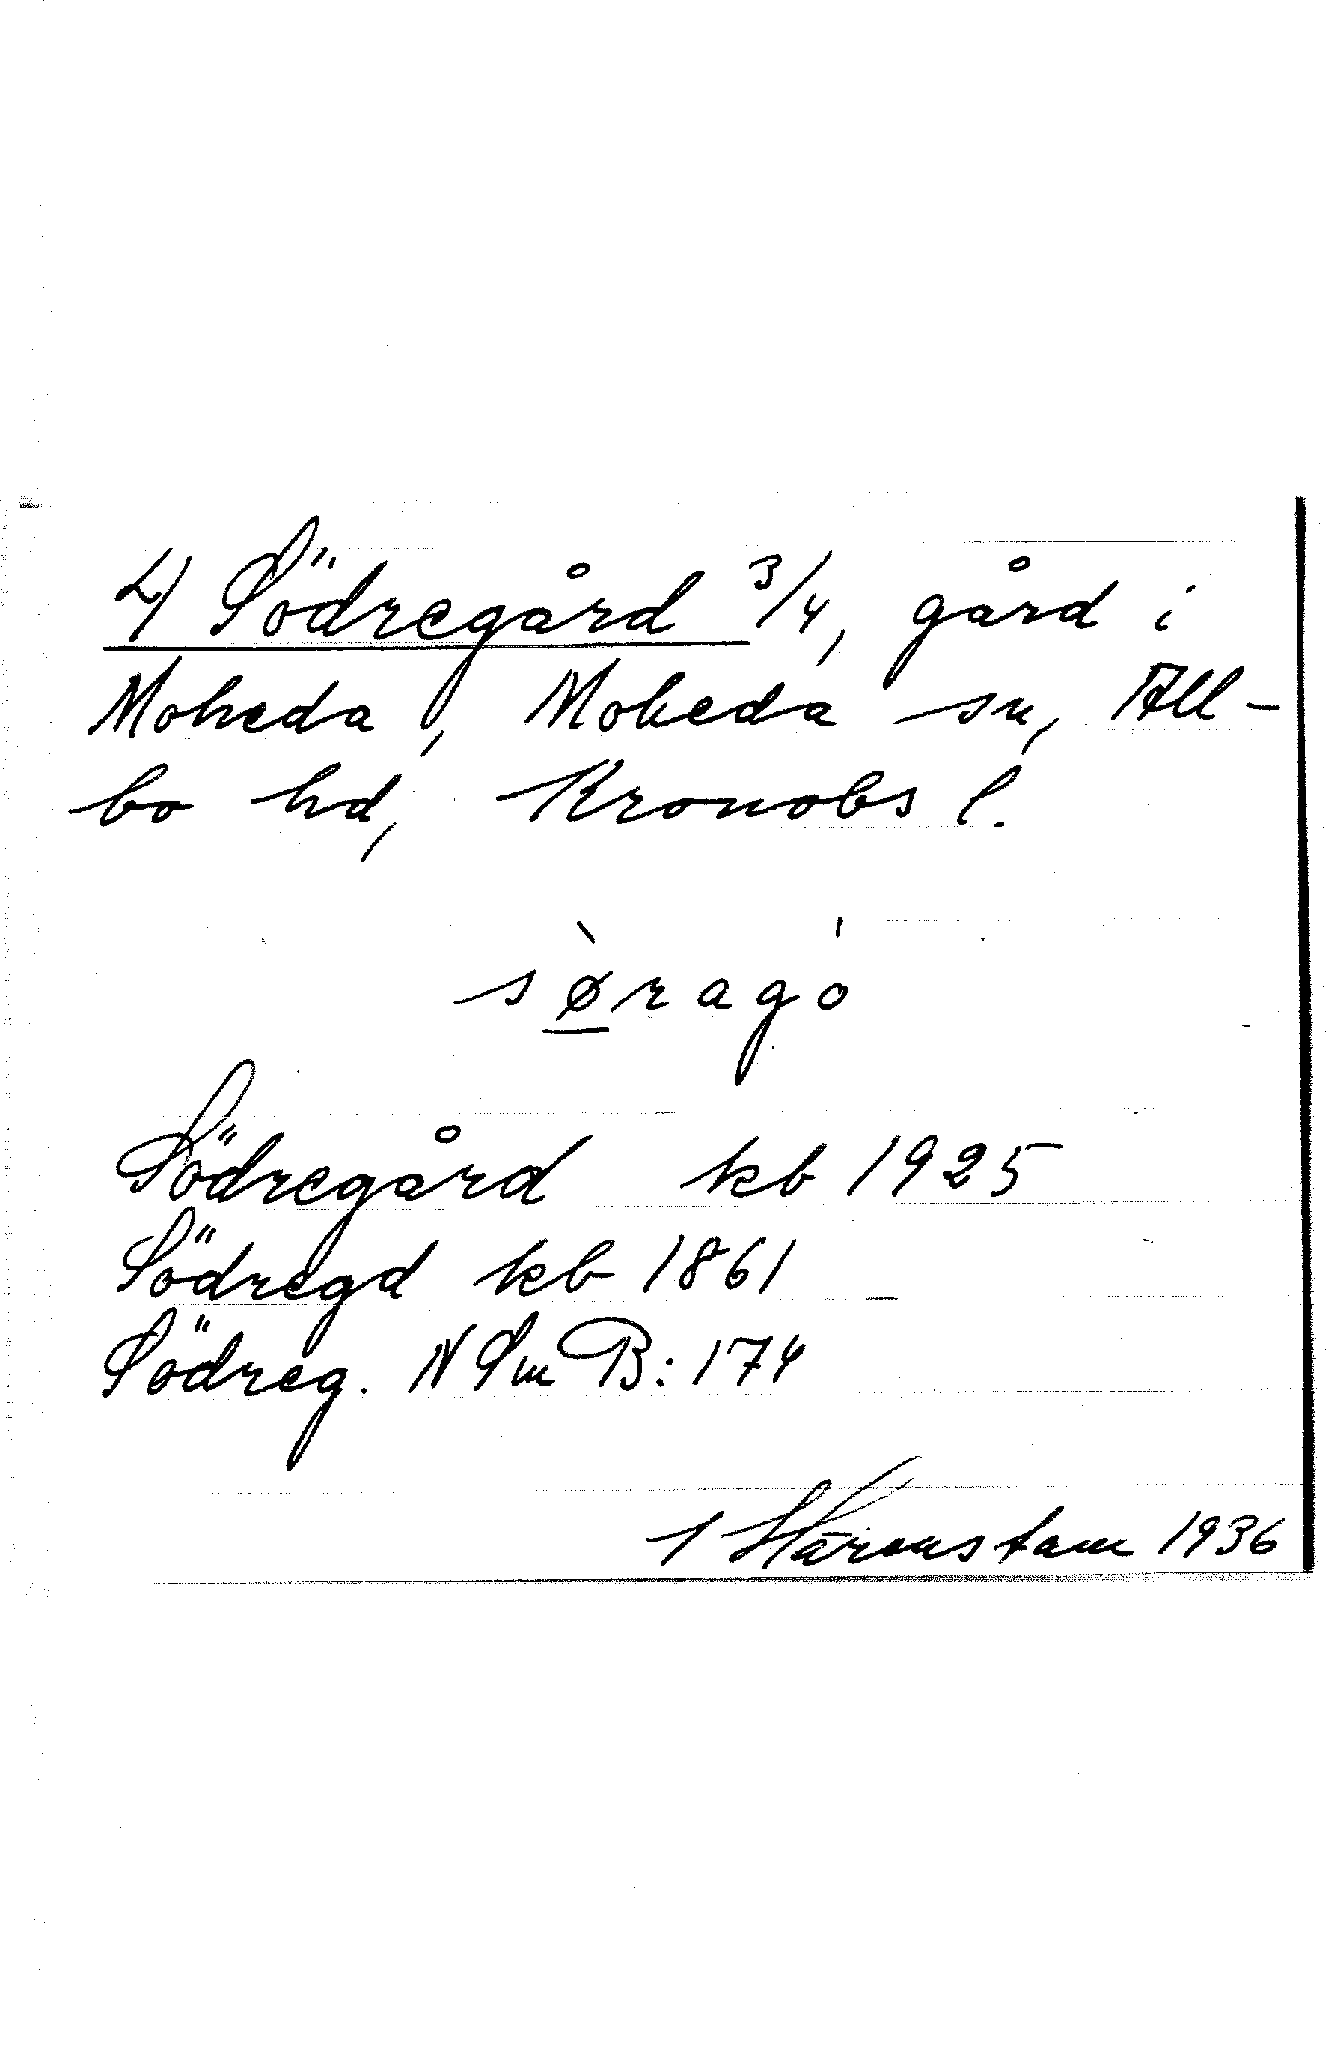 4) Södregård 3/4, gård i
Moheda, Moheda sn, All-
bo hd, Kronobs l.
sø̀ragó
Södregård kb 1925
Södregd kb 1861
Södreg. N Sm B: 174
1936